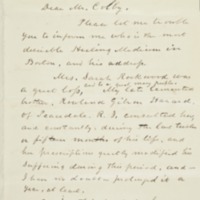 Dear Mr. Colby.
Please let me trouble
you to inform me who is the most
desirable Healing Medium in
Boston, and his address.
Mrs. Sarah Rockwood was
a great loss,
to me & to many
My late lamented
brother, Rowland Gibson Hazard,
of Peacedale. R. I. consulted her
constantly, during the last twelve
or fifteen months of his life, and
her prescriptions greatly modified his
sufferings during this period, and
I have no doubt prolonged it a
year, at least.